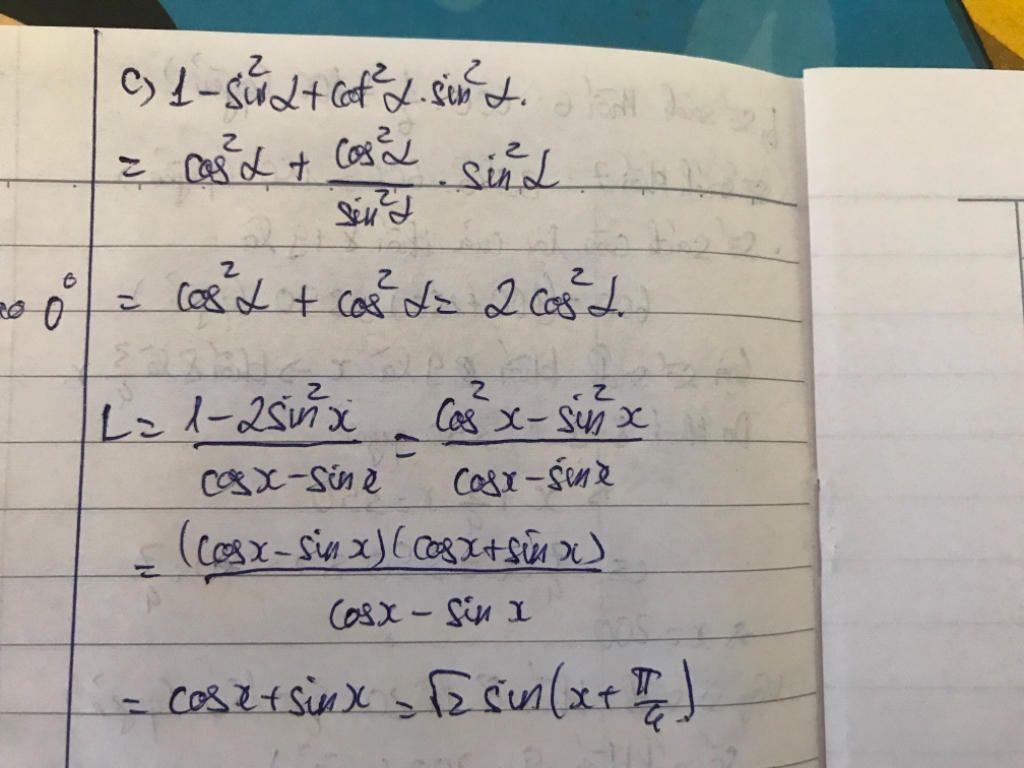 c) 1 - sin²α + cot²α . sin²α.
= cos²α + cos²α / sin²α . sin²α
0°
= cos²α + cos²α = 2 cos²α.
L = (1 - 2sin²x) / (cosx - sinx) = (cos²x - sin²x) / (cosx - sinx)
= (cosx - sinx)(cosx + sinx) / (cosx - sinx)
= cosx + sinx = √2 sin(x + π/4)